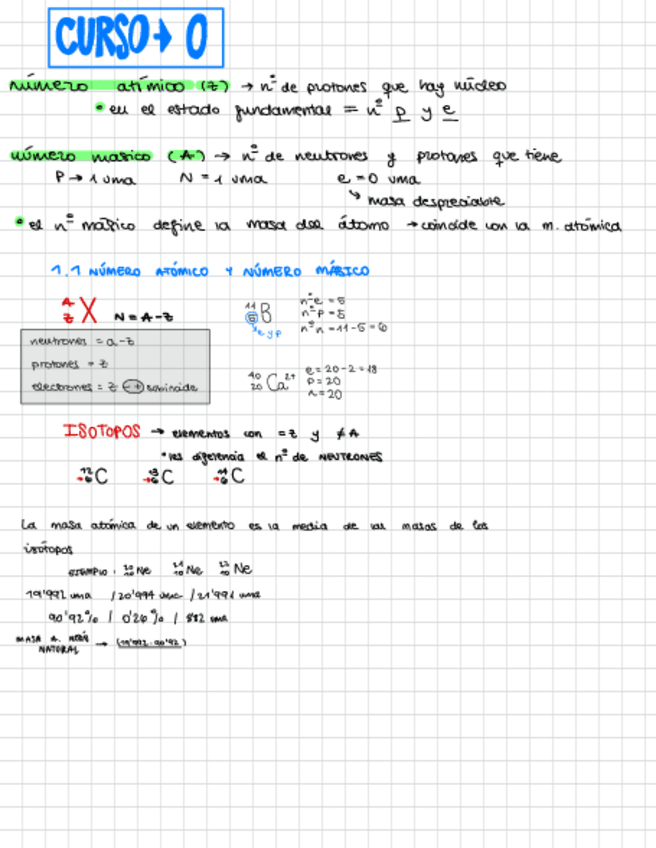 CURSO → 0
número atómico (Z) → nº de protones que hay núcleo
• en el estado fundamental = nº p y e
número masico (A) → nº de neutrones y protones que tiene
P → 1 uma N = 1 uma e = 0 uma
↳ masa despreciable
• el nº másico define la masa del átomo → coincide con la m. atómica
1.1 NÚMERO ATÓMICO Y NÚMERO MÁSICO
A Z X N = A - Z
neutrones = a - z
protones = z
electrones = z
11 5 B
e y p
nº e = 5
nº p = 5
nº n = 11 - 5 = 6
40 20 Ca 2+
e = 20 - 2 = 18
P = 20
n = 20
ISOTOPOS → elementos con = Z y ≠ A
* les diferencia el nº de NEUTRONES
12 6 C 13 6 C 14 6 C
La masa atómica de un elemento es la media de las masas de los
isótopos
EJEMPLO: 20 10 Ne 21 10 Ne 22 10 Ne
19'992 uma / 20'994 uma / 21'991 uma
90'92% / 0'26% / 8'82 uma
MASA A. NEÓN
NATURAL → (19'992 · 90'92)